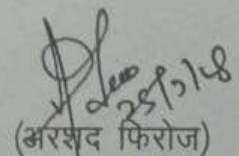 25/7/18
(अरशद फिरोज)